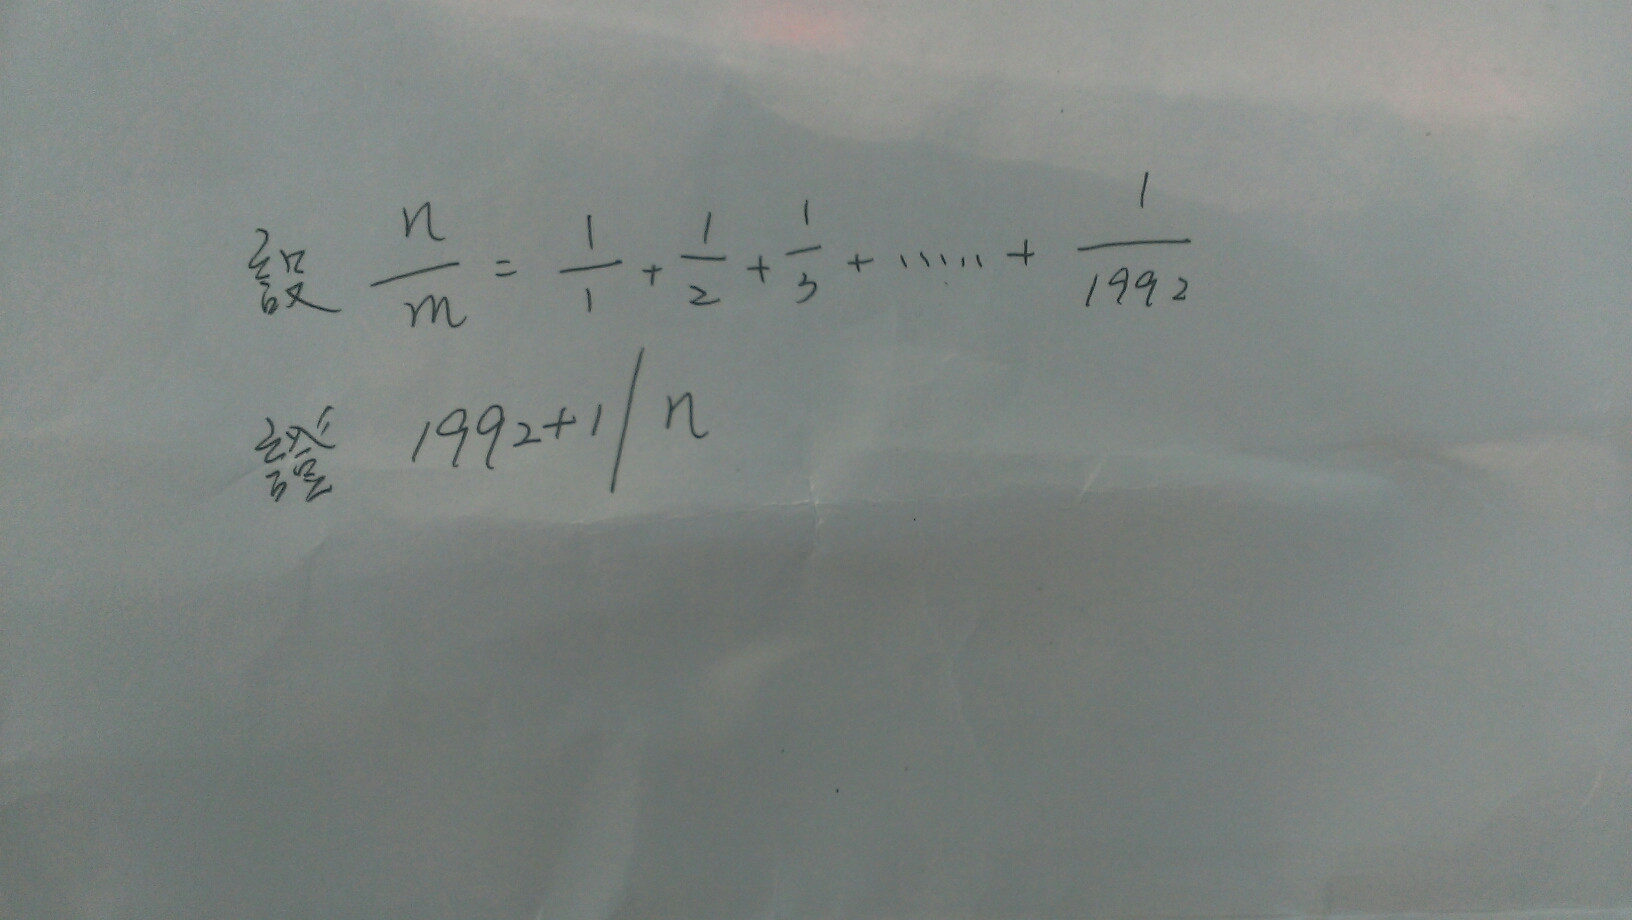 設 n/m = 1/1 + 1/2 + 1/3 + ...... + 1/1992
證 1992+1 / n